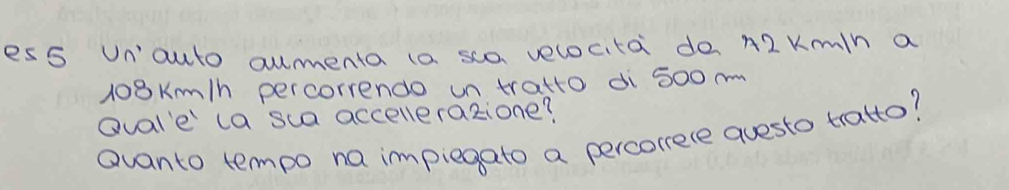 es 5 Un'auto aumenta la sua velocità da 72 Km/h a
108 Km/h percorrendo un tratto di 500 m
Qual'e' la sua accellerazione?
Quanto tempo ha impiegato a percorrere questo tratto?